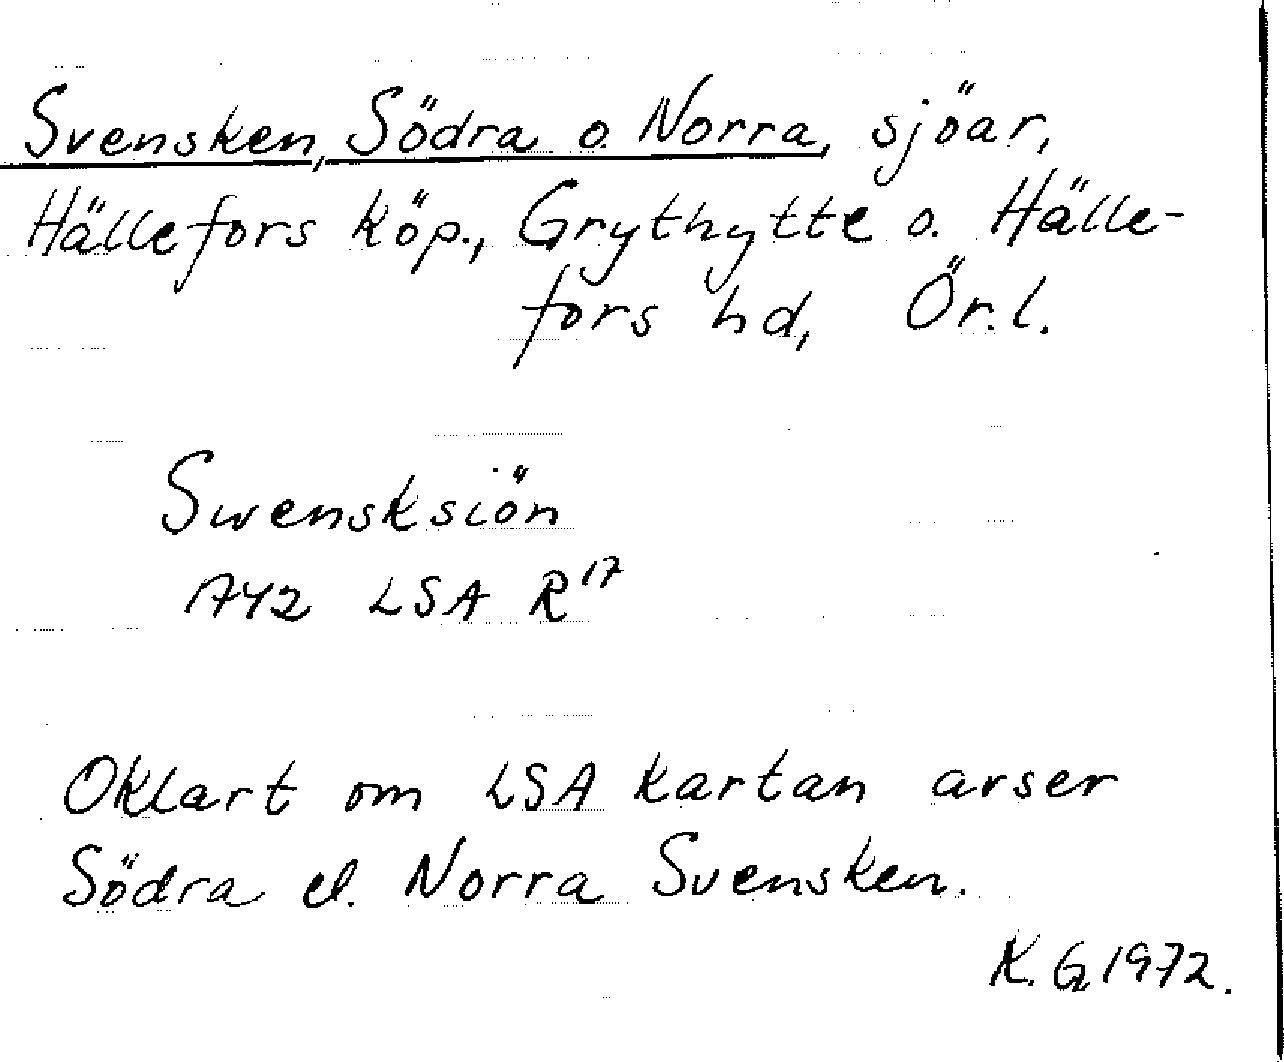 Svensken, Södra o. Norra, sjöar,
Hällefors köp., Grythytte o. Hälle-
fors hd, Ör. l.
Swensksiön
1742 LSA R17
Oklart om LSA kartan avser
Södra el. Norra Svensken.
K. G 1972.